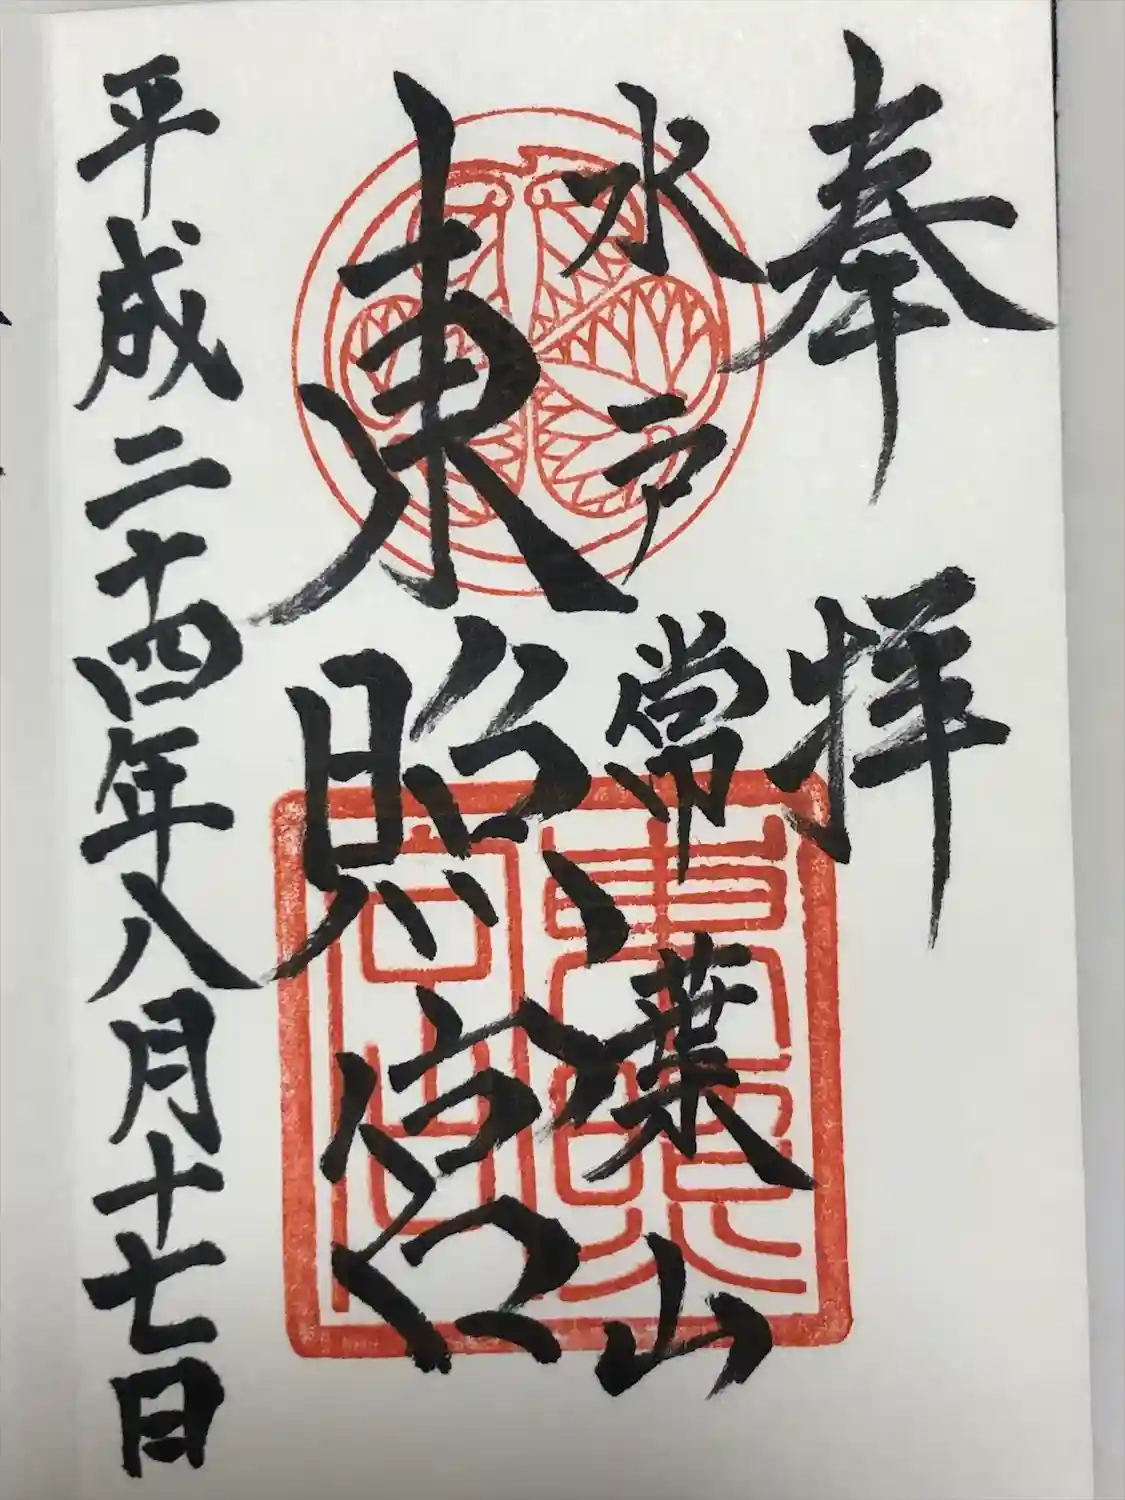 奉拝
水戸常葉山
東照宮
平成二十四年八月十七日
東照宮